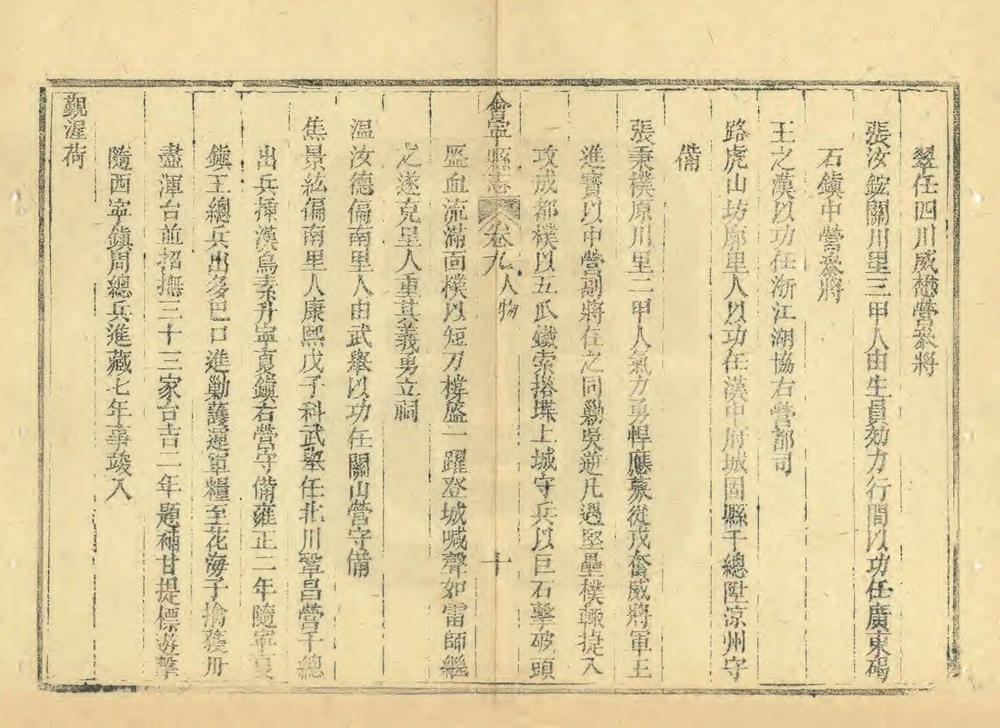 翠任四川威懋營參將
張汝鋐關川里三甲人由生員効力行間以功任廣東碣
石鎮中營參將
王之漢以功任浙江湖協右營都司
路虎山坊廓里人以功任漢中府城固縣千總陞凉州守
備
張秉樸原川里二甲人氣方勇悍應募從戎奮威將軍王
進寶以中營副將在之同勦吳逆凡遇堅壘樸輒捷入
攻成都樸以五爪鐵索搭堞上城守兵以巨石擊破頭
會寧縣志 卷九人物 十
盔血流滿面樸以短刀撐盔一躍登城喊聲如雷師繼
之遂克里人重其義勇立祠
溫汝德偏南里人由武舉以功任關山營守備
焦景竑偏南里人康熙戊子科武舉任北川鞏昌營千總
出兵揷漢烏素升寧夏鎮右營守備雍正二年隨寧夏
鎮王總兵出多巴口進勦護運軍糧至花海子擒獲丹
盡渾台並招撫三十三家台吉二年題補甘提標遊擊
隨西寧鎮周總兵進藏七年事竣入
覲渥荷